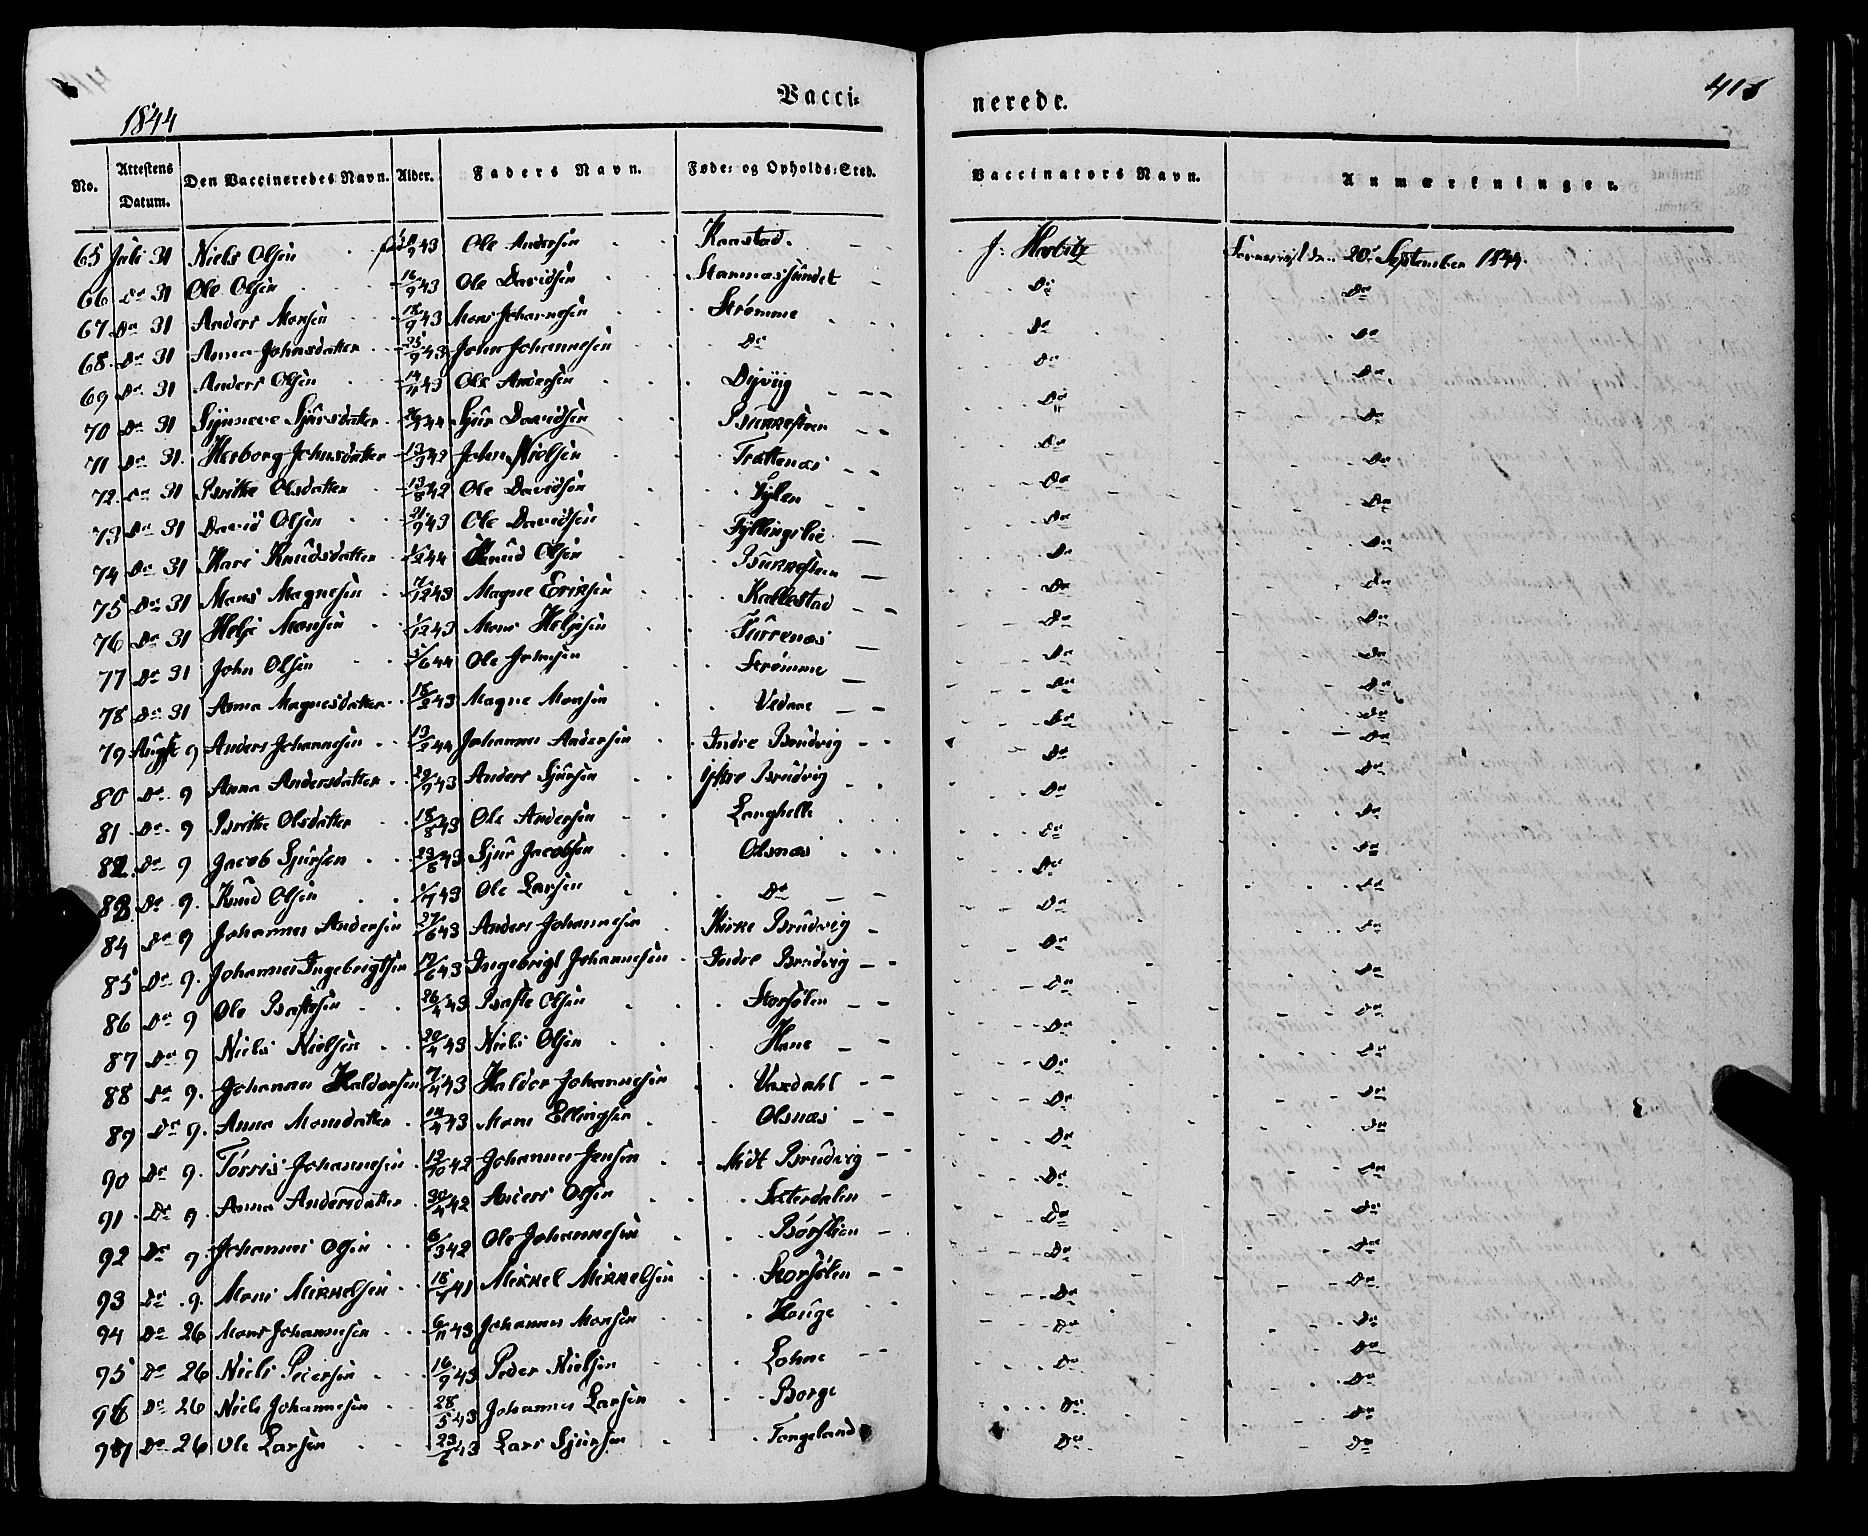 1844
Vacci=
nerede.
No. Attestens Datum. Den Vaccineredes Navn. Alder. Faders Navn. Føde= og Opholds=Sted. Vaccinators Navn. Anmærkninger.
65 Juli 31 Niels Olsen 43 Ole Andersen Kaastad. J: Herbitz 20de September 1844.
66 do 31 Ole Olsen 16/9 43 Ole Davidsen Stammessundet Do Do
67 Do 31 Anders Monsen 18/9 43 Mons Johannesen Strømme Do Do
68 Do 31 Anna Johnsdatter 25/9 43 John Johannesen Do Do Do
69 Do 31 Anders Olsen 14/11 43 Ole Andersen Dyviig Do Do
70 Do 31 Synneve Sjursdatter 44 Sjur Davidsen Bukkesteen Do Do
71 Do 31 Herborg Johnsdatter 13/9 42 John Nielsen Trættenæs Do Do
72 Do 31 Brithe Olsdatter 13/8 42 Ole Davidsen Do Do
73 Do 31 David Olsen 21/9 43 Ole Davidsen Fyllingslie Do Do
74 Do 31 Kari Knudsdatter 44 Knud Olsen Bukkesteen Do Do
75 Do 31 Mons Magnesen 7/12 43 Magne Eriksen Kallestad Do Do
76 Do 31 Helje Monsen 1/12 43 Mons Heljesen Furrenæs Do Do
77 Do 31 John Olsen 5/6 44 Ole Johnsen Strømme Do Do
78 Do 31 Anna Magnesdatter 18/2 43 Magne Monsen Vedaae Do Do
79 Augst 9 Anders Johannesen 13/2 44 Johannes Andersen Indre Brudvig Do Do
80 Do 9 Anna Andersdatter 29/9 43 Anders Sjursen Ytre Brudvig Do Do
81 Do 9 Brithe Olsdatter 18/8 43 Ole Andersen Langhelle Do Do
82 Do 9 Jacob Sjursen 23/8 43 Sjur Jacobsen Olsnæs Do Do
83 Do 9. Knud Olsen 1/7 43 Ole Larsen Do Do Do
84 Do 9 Johannes Andersen 27/6 43 Anders Johannesen Kirke Brudvig Do Do
85 Do 9. Johannes Ingebrigtsen 17/6 43 Ingebrigt Johannesen Indre Brudvig Do Do
86 Do 9 Ole Bastesen 26/4 43 Baste Olsen Storsølen Do Do
87 Do 9 Niels Nielsen 20/4 43 Niels Olsen Hane Do Do
88 Do 9. Johannes Haldorsen 7/4 43 Haldor Johannesen Vaxdahl Do Do
89 Do 9. Anna Monsdatter 14/4 43 Mons Ellingsen Olsnæs Do Do
90 Do 9. Torris Johannesen 12/10 42 Johannes Jensen Midt Brudvig Do Do
91 Do 9. Anna Andersdatter 30/4 42 Anders Olsen Sæterdalen Do Do
92 Do 9. Johannes Olsen 6/3 42 Ole Johannesen Børslien Do Do
93 Do 9. Mons Mikkelsen 41 Mikkel Mikkelsen Storsølen Do Do
94 Do 26 Mons Johannesen 6/11 43 Johannes Monsen Houge Do Do
95 Do 26 Niels Pedersen 16/9 43 Peder Nielsen Lohne Do Do
96 Do 26 Niels Johannesen 28/5 43 Johannes Larsen Borge Do Do
97 Do 26 Ole Larsen 23/6 43 Lars Sjursen Tongeland Do Do